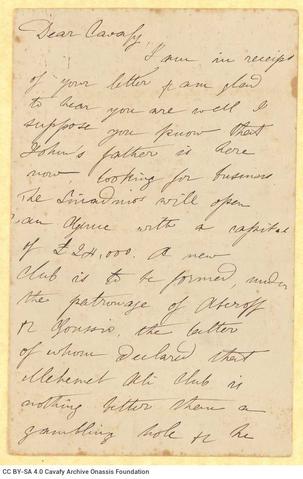 Dear Cavafy,
I am in receipt
of your letter & am glad
to hear you are well I
suppose you know that
John's father is here
now looking for business
The will open
an with a capital
of £24,000. A new
Club is to be formed, under
the patronage of Averoff
& the latter
of whom declared that
Mehemet Ali Club is
nothing better than a
gambling hole & he
CC BY-SA 4.0 Cavafy Archive Onassis Foundation